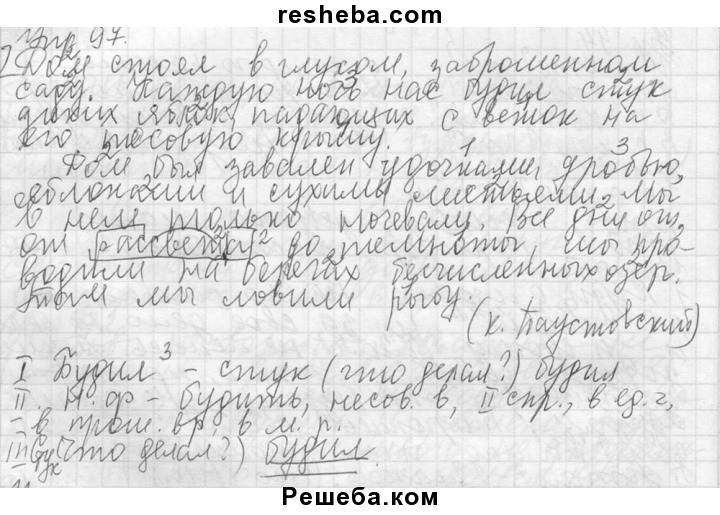 resheba.com
Упр 97.
Дом стоял в глухом, заброшенном
саду. Каждую ночь нас будил стук
диких яблок, падающих с веток на
его тесовую крышу.
Дом был завален удочками, дробью,
яблоками и сухими листьями. Мы
в нем только ночевали. Все дни от,
от рассвета до темноты, мы про-
водили на берегах бесчисленных озер.
Там мы ловили рыбу.
(К. Паустовский)
I Будил 3 – стук (что делал?) будил
II. Н.ф – будить, несов. в, II спр., в ед. ч,
в прош. вр, в м. р.
III (что делал?) будил.
Решеба.ком